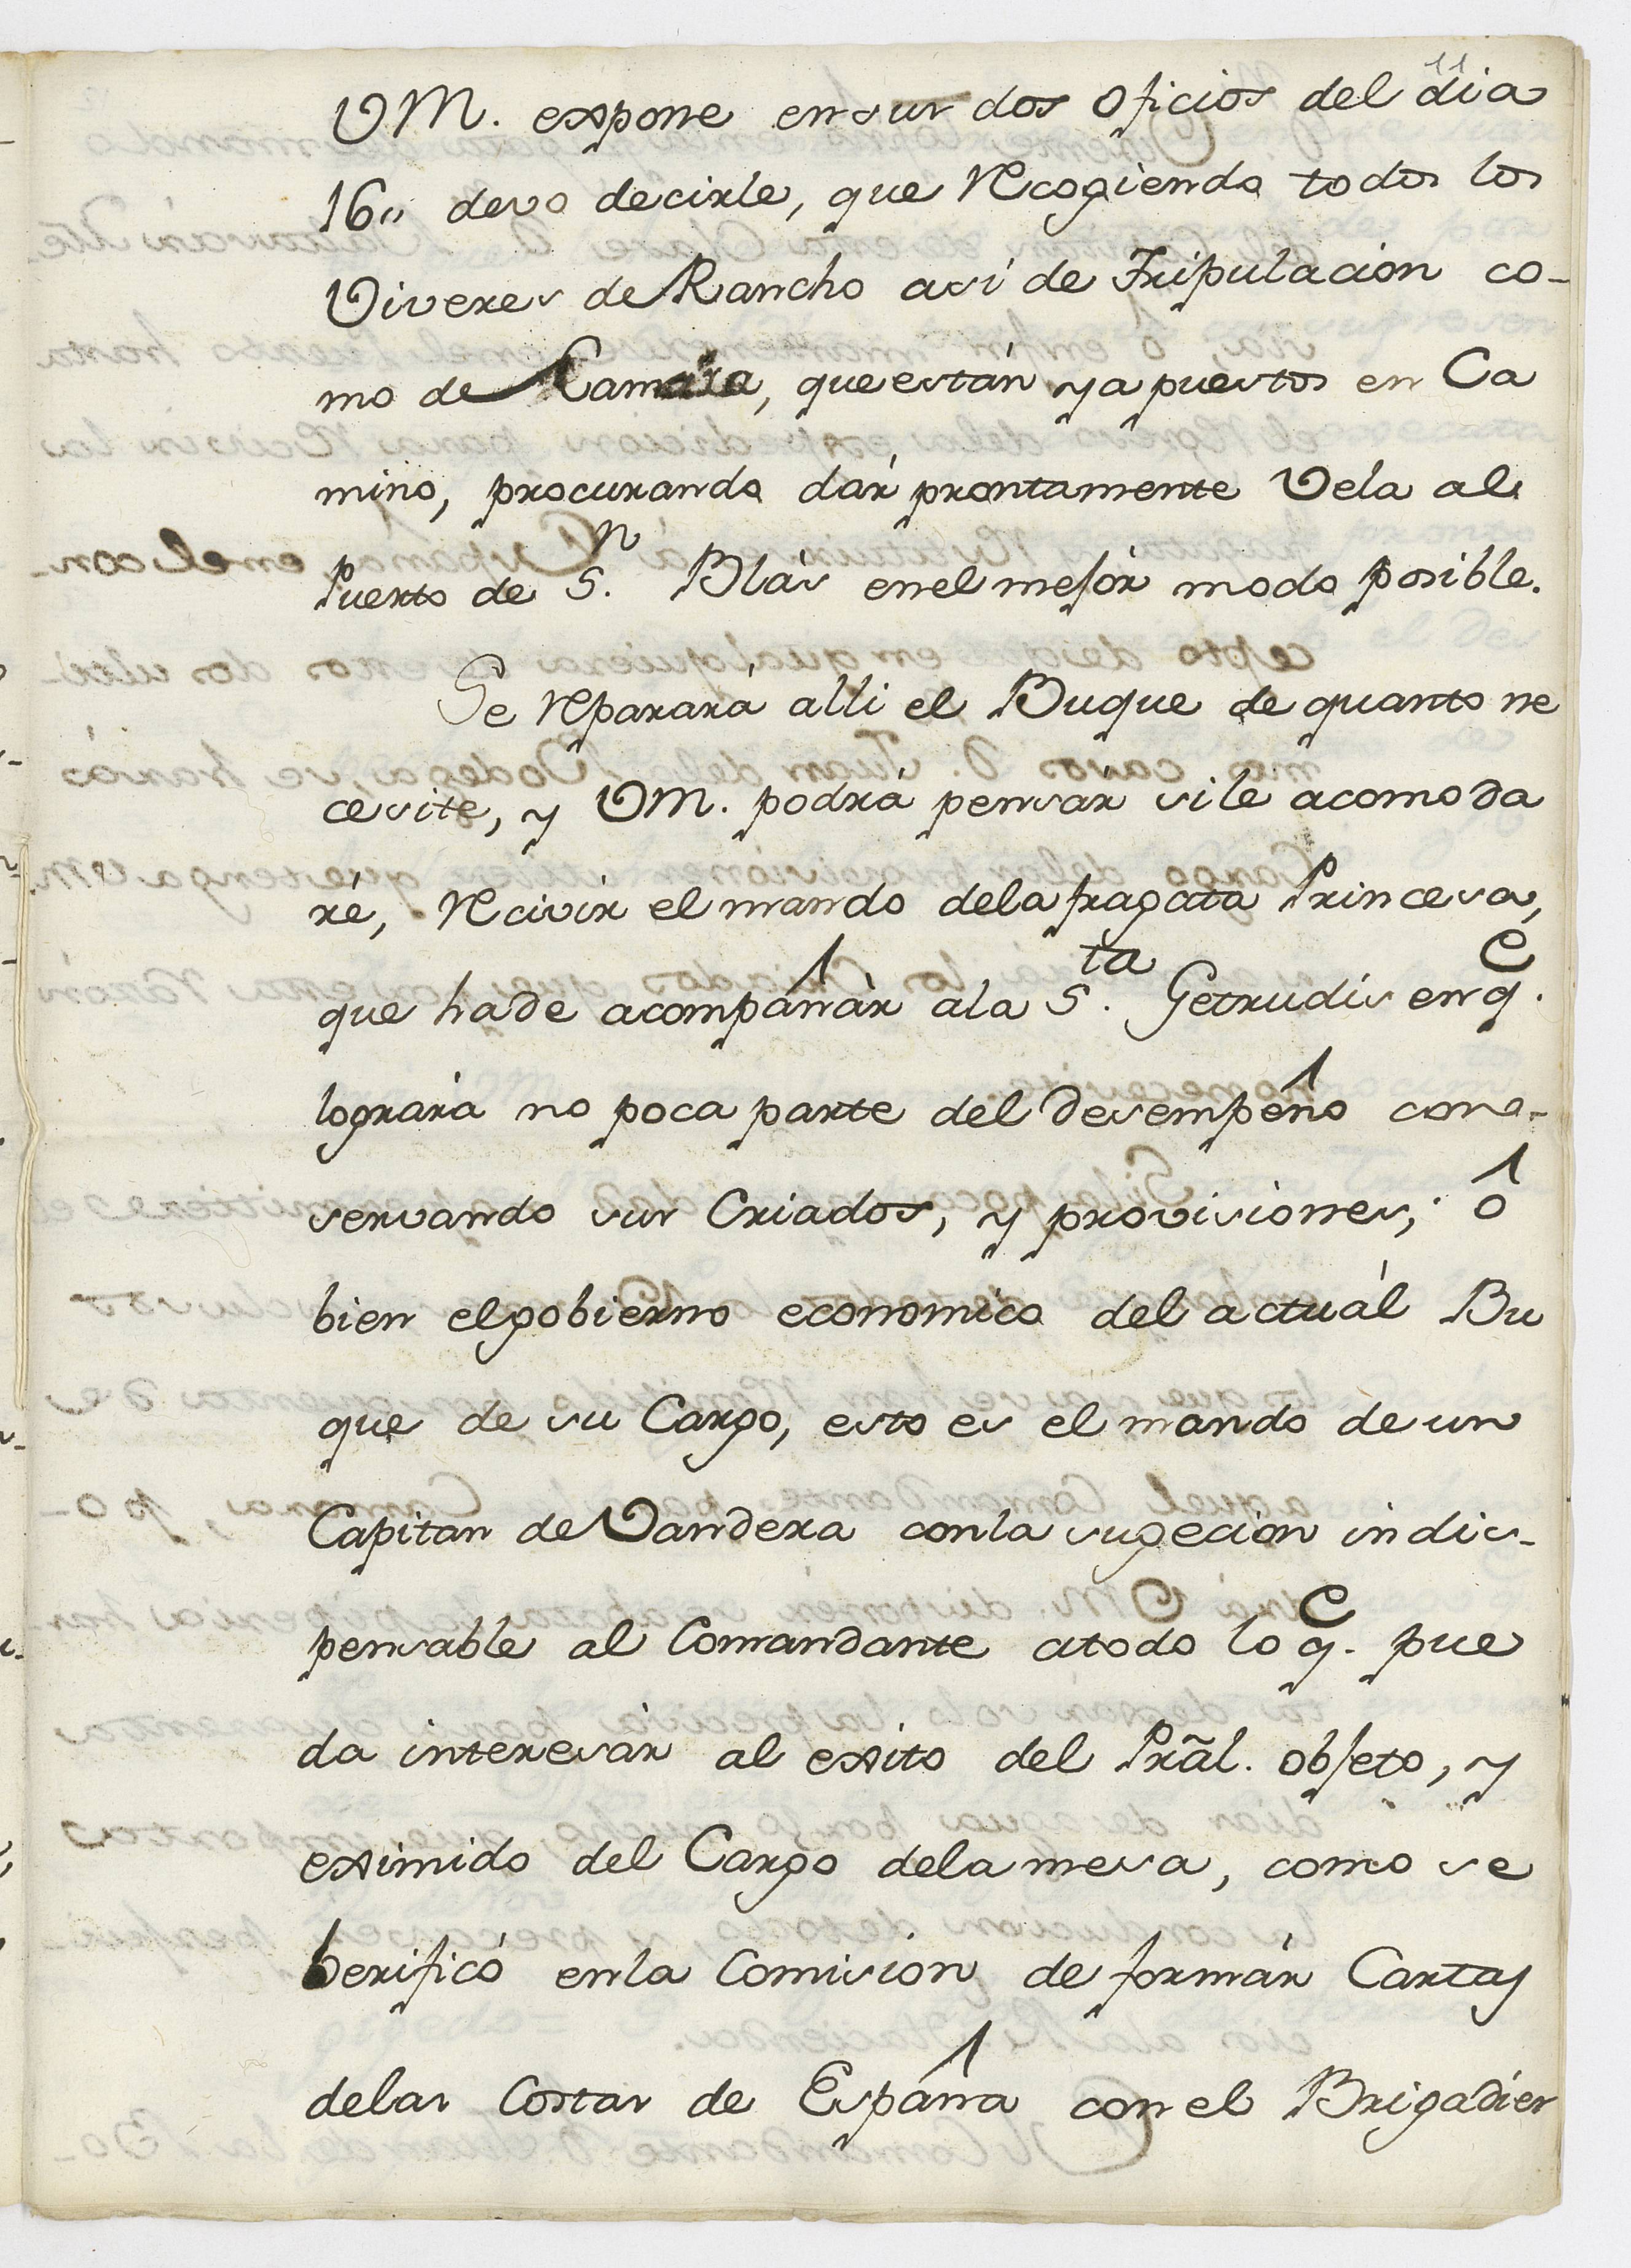 11
VM. expone en sus dos oficios del dia
16,, devo decirle, que Recogiendo todos los
Viveres de Rancho asi de Tripulacion co-
mo de Camara, que están ya puestos en Ca
mino, procurando dár prontamente Vela al
Puerto de S.n Blás en el mejór modo posible.
Se Reparará alli el Buque de quanto ne
cesite, y VM. podrá pensár si le acomoda
ré, Recivir el mando dela fragata Princesa,
que ha de acompáñár ala S.ta Getrudis en q.e
lograrà no poca parte del desempeño con-
servando sus Criados, y provisiónes; ó
bien el gobierno economico del actuál Bu
que de su Cargo, esto es el mando de un
Capitan de Vandera con la sugecion indis-
pensable al Comandante atodo lo q.e pue
da interesár al exito del Prãl. objeto, y
eximido del Cargo dela mesa, como se
berificó en la Comision de formár Cartas
delas Costas de España con el Brigadier